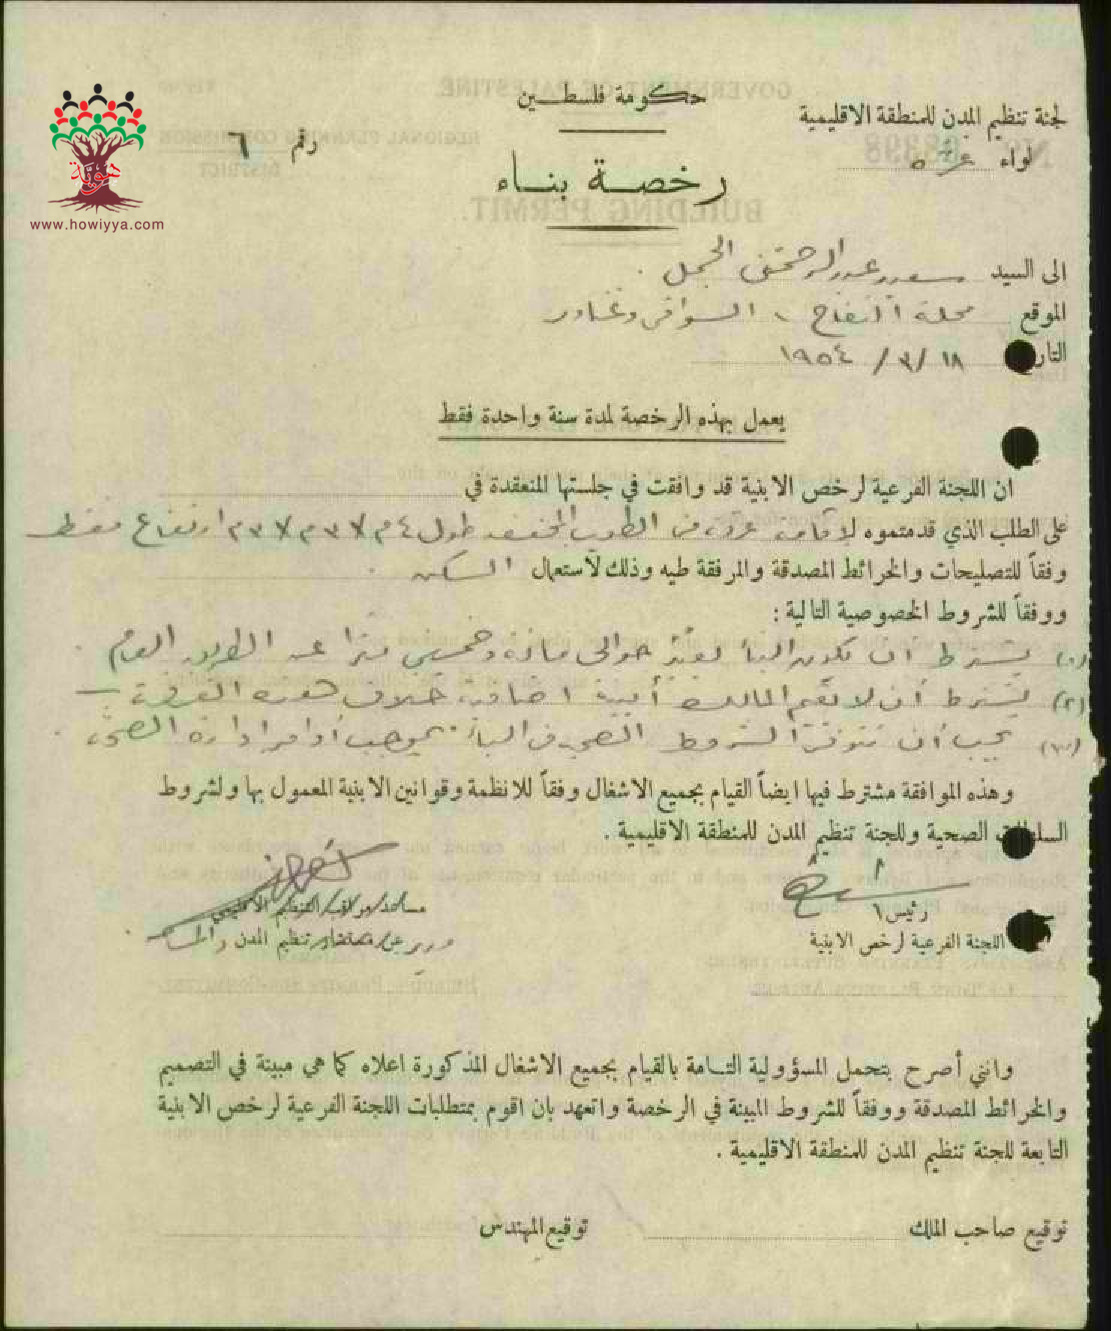 حكومة فلسطين
لجنة تنظيم المدن للمنطقة الاقليمية
لواء غزه
رقم ٦
رخصة بناء
هوية
www.howiyya.com
الى السيد سعيد عبد الرحمن الجمل
الموقع محلة التفاح ، السوافي وغادر
التاريخ ١٨ / ٣ / ١٩٥٤
يعمل بهذه الرخصة لمدة سنة واحدة فقط
ان اللجنة الفرعية لرخص الابنية قد وافقت في جلستها المنعقدة في
على الطلب الذي قدمتموه لاقامة غرفه من الطوب المجفف طول ٤م X ٣م X ٣م ارتفاع فقط
وفقاً للتصليحات والخرائط المصدقة والمرفقة طيه وذلك لاستعمال السكن
ووفقاً للشروط الخصوصية التالية :
(١) يشترط ان يكون البناء بعيد حوالى مائة وخمسين مترا عن الطريق العام .
(٢) يشترط أن لا يقيم المالك أبنية اضافية خلاف هذه الغرفة
(٣) يجب أن تتوفر الشروط الصحية في البناء بموجب أوامر ادارة الصحة .
وهذه الموافقة مشترط فيها ايضاً القيام بجميع الاشغال وفقاً للانظمة وقوانين الابنية المعمول بها ولشروط
السلطات الصحية وللجنة تنظيم المدن للمنطقة الاقليمية .
رئيس
مساعد مراقب التنظيم الاقليمي
اللجنة الفرعية لرخص الابنية
تنظيم المدن
وانني أصرح بتحمل المسؤولية التامة بالقيام بجميع الاشغال المذكورة اعلاه كما هي مبينة في التصميم
والخرائط المصدقة ووفقاً للشروط المبينة في الرخصة واتعهد بان اقوم بمتطلبات اللجنة الفرعية لرخص الابنية
التابعة للجنة تنظيم المدن للمنطقة الاقليمية .
توقيع صاحب الملك
توقيع المهندس